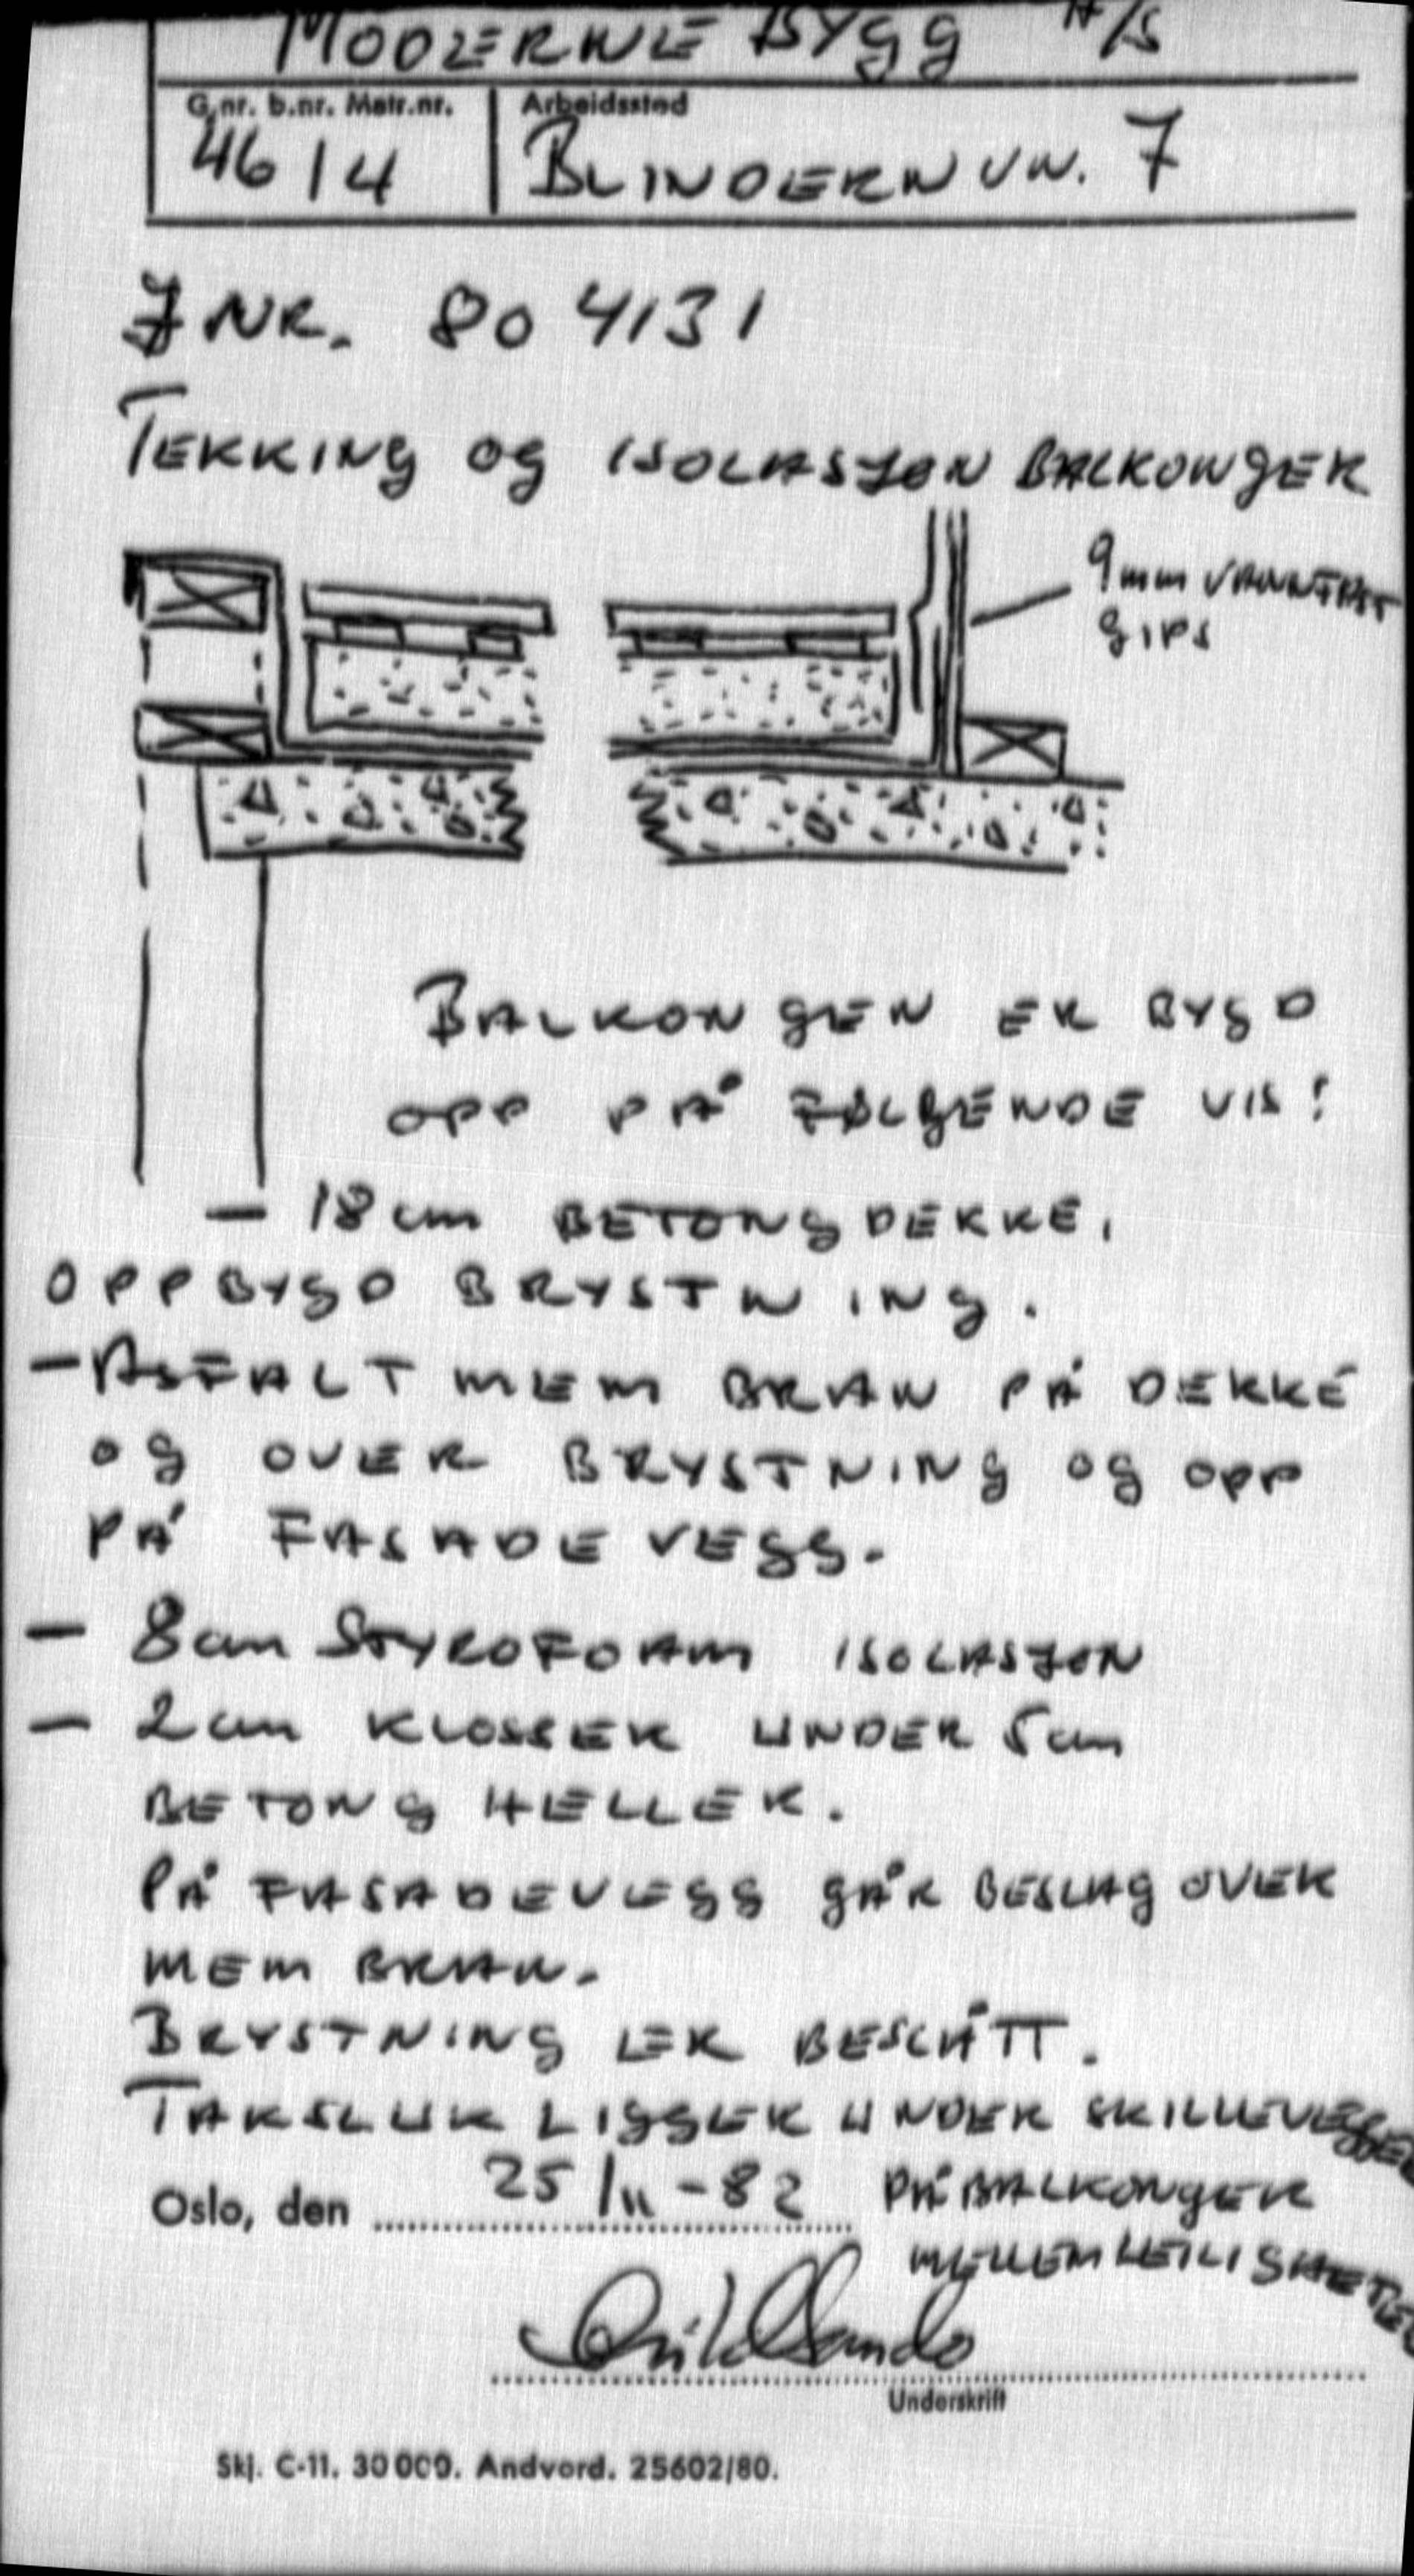 MODERNE BYGG A/S
G.nr. b.nr. Matr.nr.
Arbeidssted
46 / 4
BLINDERNVN. 7
J NR. 804131
TEKKING OG ISOLASJON BALKONGER
9mm VANNFAST
GIPS
BALKONGEN ER BYGD
OPP PÅ FØLGENDE VIS:
- 18 cm BETONGDEKKE,
OPPBYGD BRYSTNING.
- ASFALTMEMBRAN PÅ DEKKE
OG OVER BRYSTNING OG OPP
PÅ FASADEVEGG.
- 8 cm STYROFOAM ISOLASJON
- 2 cm KLOSSER UNDER 5 cm
BETONGHELLER.
PÅ FASADEVEGG GÅR BESLAG OVER
MEMBRAN.
BRYSTNING ER BESLÅTT.
TAKSLUK LIGGER UNDER SKILLEVEGGER
PÅ BALKONGER
MELLEM LEILIGHETER
Oslo, den 25/11-82
Underskrift
Skj. C-11. 30000. Andvord. 25602/80.